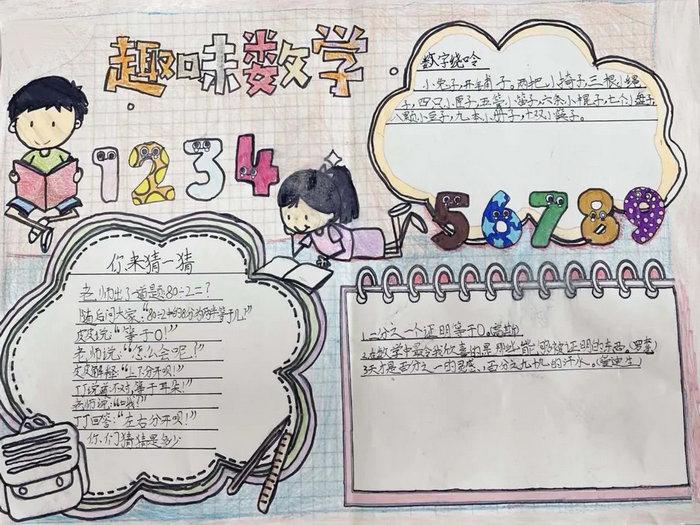 趣味数学
1 2 3 4
数字绕口令
小兔子,开铺子。两把小椅子,三根小绳
子,四只小匣子,五管小笛子,六条小棍子,七个小盘子,
八颗小豆子,九本小册子,十双小筷子。
5 6 7 8 9
你来猜一猜
老师出了一道题:80÷2=?
随后问大家,"80÷2把8分为两半等于几!"
皮皮说:"等于0!"
老师说:"怎么会呢!"
皮皮解释:"上下分开呗!"
丁丁说:不对,等于耳朵!"
老师说:"哦!"
丁丁回答:"左右分开呗!"
你们猜猜是多少
1.二分之一个证明等于0。
2.在数学中最令我欣喜的是那些能够被证明的东西。(罗素)
3.天才是百分之一的灵感,百分之九十九的汗水。(爱迪生)